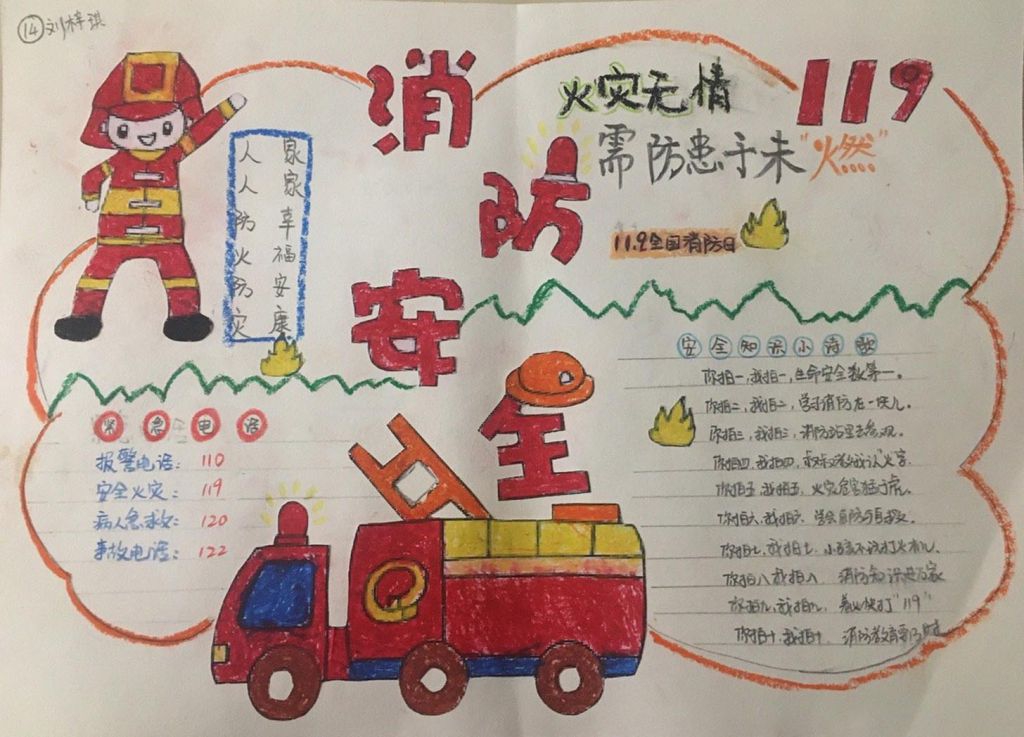 14 刘梓琪
消防安全
119
火灾无情
需防患于未"燃"
11.9全国消防日
人人防火防灾
家家幸福安康
紧急电话
报警电话：110
安全火灾：119
病人急救：120
事故电话：122
安全知识小诗歌
你拍一，我拍一，生命安全数第一。
你拍二，我拍二，学习消防在一块儿。
你拍三，我拍三，消防站里去参观。
你拍四，我拍四，叔叔教我认"火"字。
你拍五，我拍五，火灾危害猛于虎。
你拍六，我拍六，学会自防与自救。
你拍七，我拍七，小孩不玩打火机。
你拍八 我拍八 消防知识进万家
你拍九，我拍九，着火快打"119"
你拍十，我拍十，消防教育要